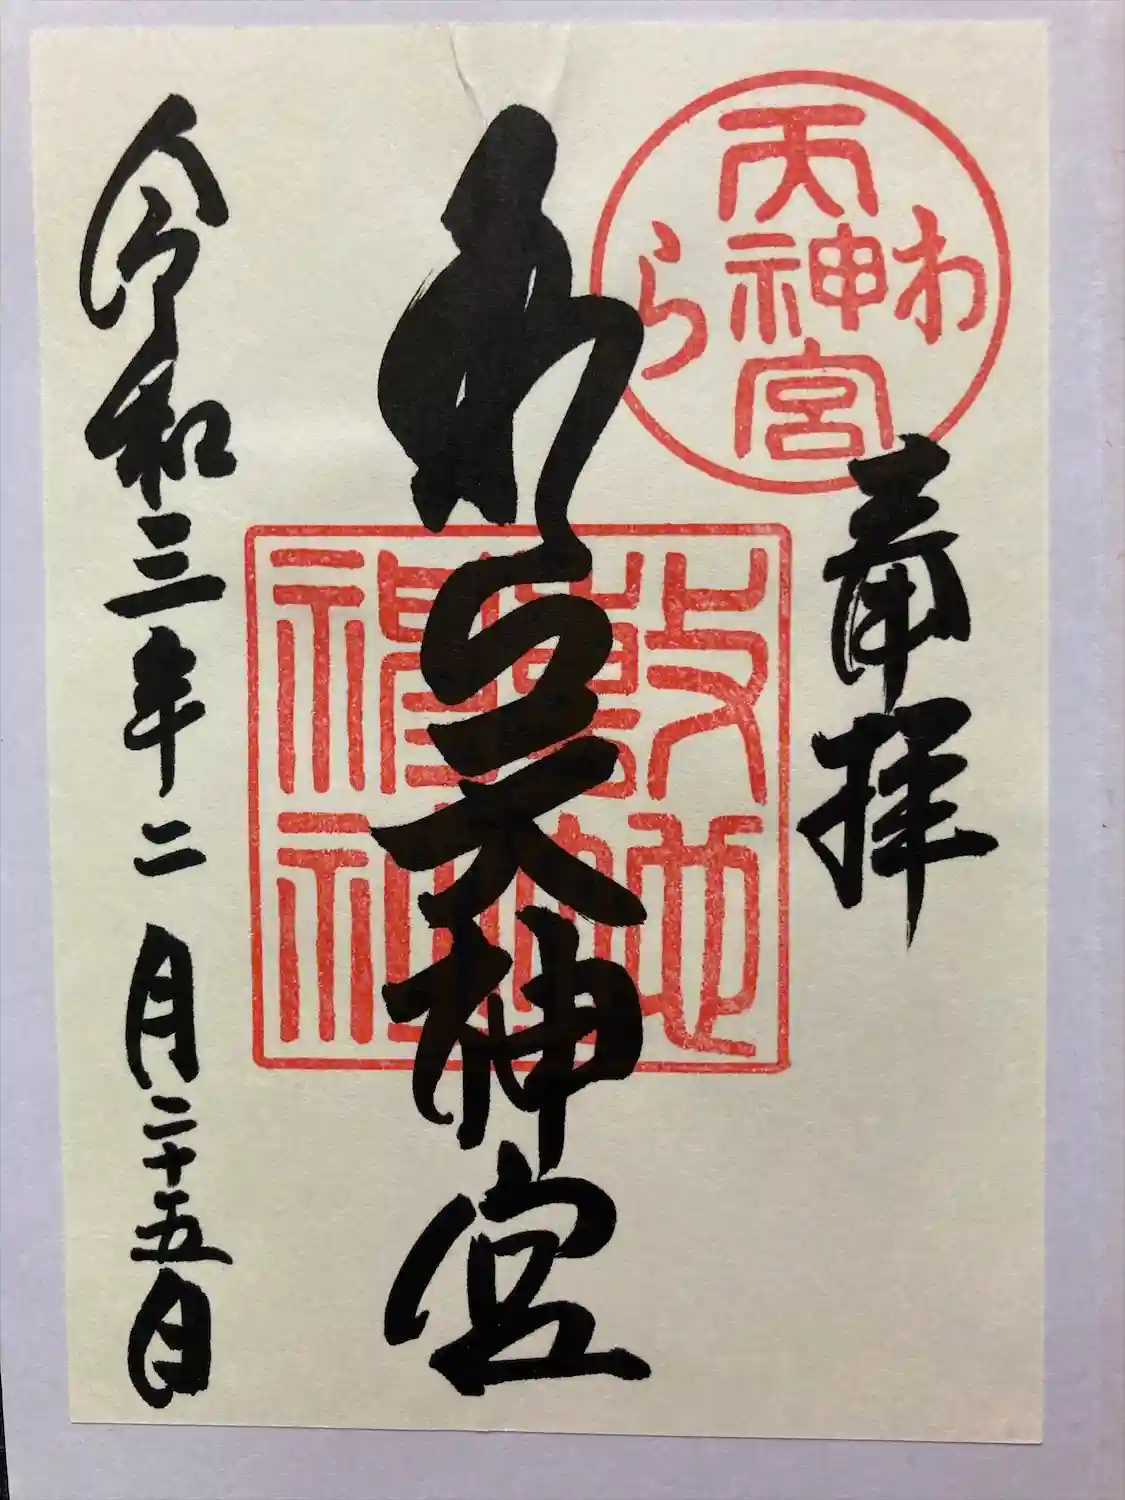 奉拝
わら
天神宮
わら天神宮
敷地
神社
令和三年二月二十五日